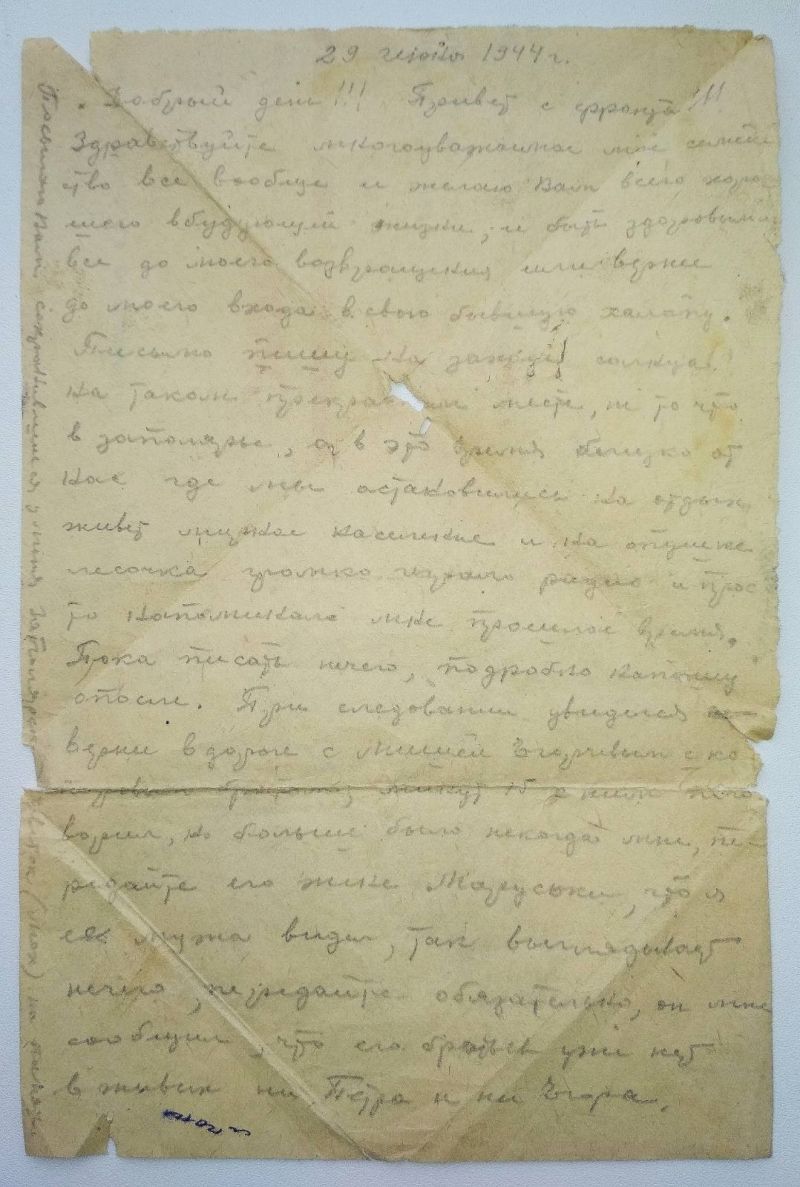 29 июня 1944 г.
Добрый день!!! Привет с фронта!!!
Здравствуйте многоуважаемое мне семей
ство все вообще и желаю Вам всего хоро
шего вбудующей жизни, и быть здоровыми
все до моего возвращения или вернее
до моего входа в свою бывшую халапу.
Письмо пишу на заходе солнца,
на таком прекрасном месте, не то что
в заполярье, а в это время близко от
нас где мы остановились на отдых
живет мирное население и на опушке
лесочка громко играло радио и прос
то напоминало мне прошлое время.
Пока писать нечего, подробно напишу
опосля. При следовании увиделся
верни в дороге с Мишей Егорчевым с ко
минут 15 с ним пого
ворил, но больше было некогда мне, пе-
редайте его жене Маруськи, что я
ее мужа видел, так выглядывает
нечего, передайте обязательно, он мне
сообщил, что его братьев уже нет
в живых ни Петра и ни Егора.
Посылаю Вам сохранившейся у меня заполярной цветок (мох) на память.